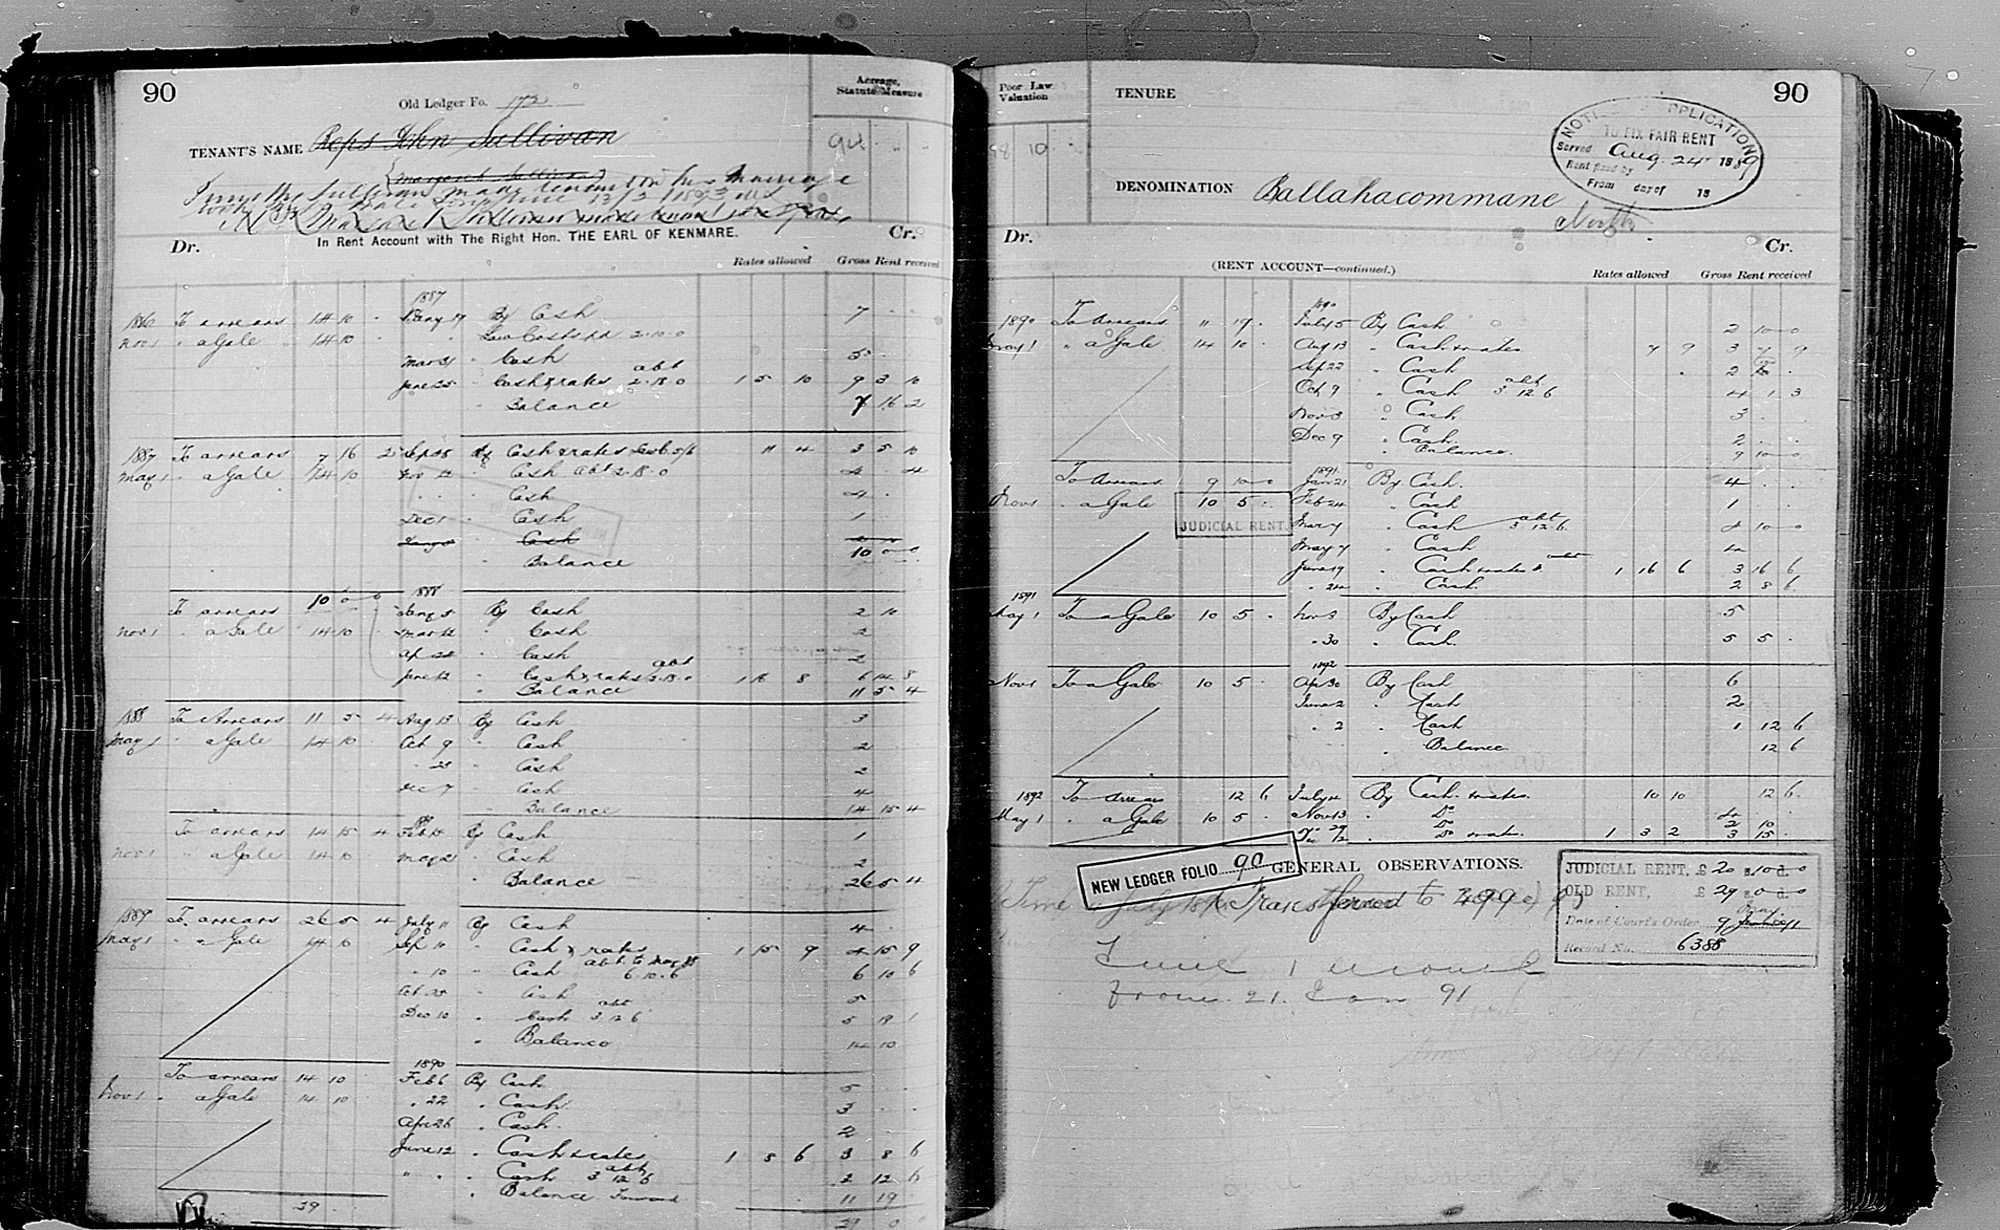 90
Old Ledger Fo. 172
Acreage, Statute Measure
TENANT'S NAME Reps John Sullivan
94
Margaret Sullivan
Timothy Sullivan made tenant on his marriage
Margaret Sullivan made tenant
Dr. In Rent Account with The Right Hon. THE EARL OF KENMARE. Cr.
Rates allowed Gross Rent received
1887
1886 To arrears 14 10 . Jany 17 By Cash 7 . .
Nov 1 " a Gale 14 10 Law Costs pd 2.10.0
Mar 31 " Cash 5 .
abt
June 25 " Cash & rates 2.18.0 1 5 10 9 3 10
" Balance 7 16 2
1887 To arrears 7 16 2 Sep 28 By Cash & rates 11 4 3 5 10
May 1 " a Gale 14 10 Nov 12 " Cash abt 2.18.0 4 . 4
" Cash 4 .
Dec 1 " Cash 1 .
Jany Cash
Balance 10 0 0
1888
To arrears 10 0 0 Jany 5 By Cash 2 10
Nov 1 " a Gale 14 10 Mar 12 " Cash 2
Ap 28 " Cash 2
abt
June 12 " Cash & rates 2.18.0 1 18 8 6 14 8
" Balance 11 5 4
1888 To Arrears 11 5 4 Aug 13 By Cash 3
May 1 " a Gale 14 10 Oct 9 " Cash 2
" 23 " Cash 2
Dec 7 " Cash 4
" Balance 14 15 4
To arrears 14 15 4 Feb 18 By Cash 1
Nov 1 " a Gale 14 10 May 21 " Cash 2
" Balance 26 5 4
1889 To arrears 26 5 4 July 11 By Cash 4
May 1 " a Gale 14 10 Sep 10 " Cash & rates 1 15 9 4 15 9
" 10 " Cash abt to May 88 6.10.6 6 10 6
Oct 25 " Cash 5
abt
Dec 10 " Cash 3 12 6 5 19 1
" Balance 14 10
1890
To arrears 14 10 Feb 6 By Cash 5 .
Nov 1 " a Gale 14 10 " 22 " Cash 3 . .
Apr 26 " Cash 2
June 12 " Cash & rates 1 8 6 3 8 6
abt
" " Cash 3 12 6 2 12 6
" Balance Forward 11 19
39 29 0
Poor Law Valuation
TENURE
90
18 10
NOTICE APPLICATION
TO FIX FAIR RENT
Served Aug. 24 1889
Rent fixed by
From day of 18
DENOMINATION Ballahacommane
North
Dr. Cr.
(RENT ACCOUNT—continued.) Rates allowed Gross Rent received
1890
1890 To Arrears 11 19 . July 5 By Cash 2 10 0
May 1 " a Gale 14 10 . Aug 13 " Cash & rates 7 9 3 7 9
Sep 22 " Cash 2 10 .
abt
Oct 9 " Cash 3 12 6 4 1 3
Nov 3 " Cash 3 .
Dec 9 " Cash 2 .
" Balance 9 10 0
1891
To Arrears 9 10 0 Jan 21 By Cash 4 .
Nov 1 " a Gale 10 5 . Feb 24 " Cash 1
JUDICIAL RENT. Mar 7 " Cash abt 3 12 6 4 10 0
May 7 " Cash 4
June 19 " Cash & rates & abt 1 16 6 3 16 6
" 24 " Cash 2 8 6
1891
May 1 To a Gale 10 5 . Nov 3 By Cash 5
" 30 " Cash 5 5 .
1892
Nov 1 To a Gale 10 5 . Ap 30 By Cash 6
June 2 " Cash 2
" 2 " Cash 1 12 6
" Balance 12 6
1892 To Arrears 12 6 July 4 By Cash & rates 10 10 12 6
May 1 " a Gale 10 5 . Nov 13 " Do 4
" 29 " Do 2 10
Dec 12 " Do & rates 1 3 2 3 15 .
NEW LEDGER FOLIO 90
GENERAL OBSERVATIONS.
Time July Transferred to 399
Time 1 month
from 21. Jan 91
JUDICIAL RENT, £ 20 s. 10 d. 0
OLD RENT, £ 29 s. 0 d. 0
May
Date of Court's Order 9 91
Record No. 6388